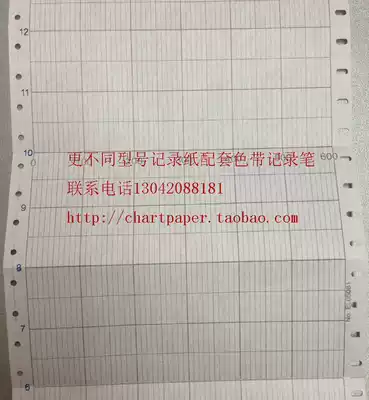 12
11
10
0
600
更不同型号记录纸配套色带记录笔
联系电话13042088181
9
http://chartpaper.taobao.com
8
7
6